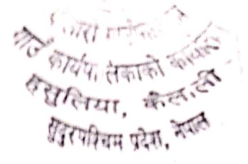 गाउँ कार्यपालिकाको कार्यालय
हसुलिया, कैलाली
सुदूरपश्चिम प्रदेश, नेपाल